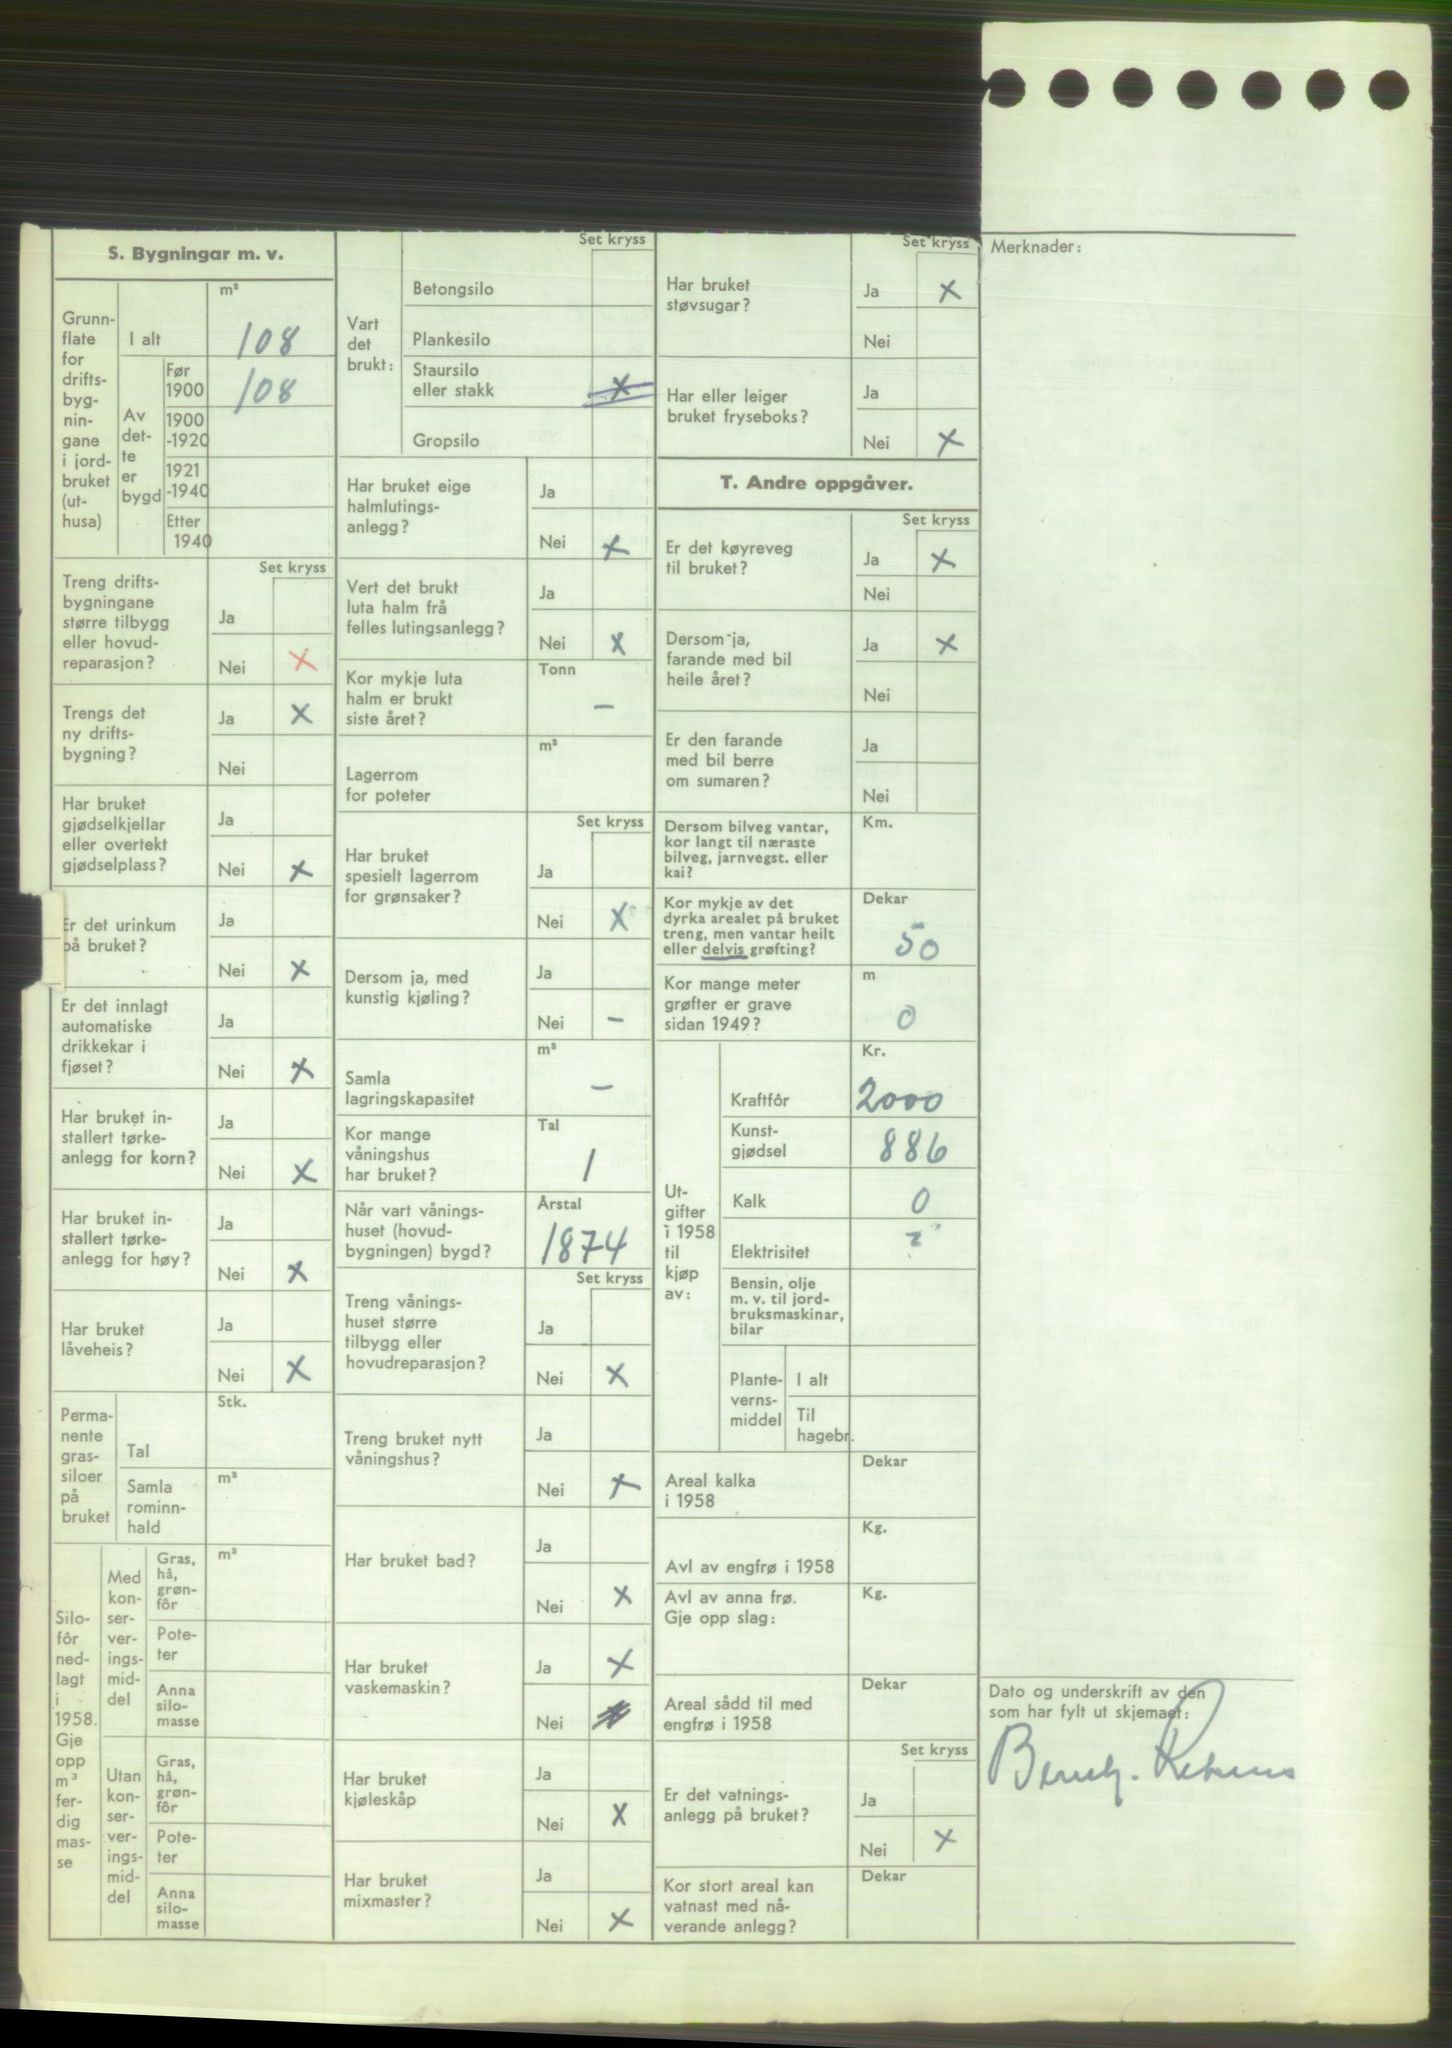 S. Bygningar m. v.
Grunn-
flate
for
drifts-
byg-
nin-
gane
i jord-
bruket
(ut-
husa)
m²
I alt
108
Av
det-
te
er
bygd
Før
1900
108
1900
-1920
1921
-1940
Etter
1940
Set kryss
Treng drifts-
bygningane
større tilbygg
eller hovud-
reparasjon?
Ja
Nei x
Trengs det
ny drifts-
bygning?
Ja x
Nei
Har bruket
gjødselkjellar
eller overtekt
gjødselplass?
Ja
Nei x
Er det urinkum
på bruket?
Ja
Nei x
Er det innlagt
automatiske
drikkekar i
fjøset?
Ja
Nei x
Har bruket in-
stallert tørke-
anlegg for korn?
Ja
Nei x
Har bruket in-
stallert tørke-
anlegg for høy?
Ja
Nei x
Har bruket
låveheis?
Ja
Nei x
Perma-
nente
gras-
siloer
på
bruket
Stk.
Tal
Samla
rominn-
hald
m³
Silo-
fôr
ned-
lagt
i
1958.
Gje
opp
m³
fer-
dig
mas-
se
Med
kon-
ser-
ver-
ings-
mid-
del
m³
Gras,
hå,
grøn-
fôr
Pote-
ter
Anna
silo-
masse
Utan
kon-
ser-
ver-
ings-
mid-
del
Gras,
hå,
grøn-
fôr
Pote-
ter
Anna
silo-
masse
Set kryss
Vart
det
brukt:
Betongsilo
Plankesilo
Staursilo
eller stakk x
Gropsilo
Har bruket eige
halmlutings-
anlegg?
Ja
Nei x
Vert det brukt
luta halm frå
felles lutingsanlegg?
Ja
Nei x
Kor mykje luta
halm er brukt
siste året?
Tonn
—
Lagerrom
for poteter
m³
Set kryss
Har bruket
spesielt lagerrom
for grønsaker?
Ja
Nei x
Dersom ja, med
kunstig kjøling?
Ja
Nei —
Samla
lagringskapasitet
m³
—
Kor mange
våningshus
har bruket?
Tal
1
Når vart vånings-
huset (hovud-
bygningen) bygd?
Årstal
1874
Set kryss
Treng vånings-
huset større
tilbygg eller
hovudreparasjon?
Ja
Nei x
Treng bruket nytt
våningshus?
Ja
Nei x
Har bruket bad?
Ja
Nei x
Har bruket
vaskemaskin?
Ja x
Nei
Har bruket
kjøleskåp
Ja
Nei x
Har bruket
mixmaster?
Ja
Nei x
Set kryss
Har bruket
støvsugar?
Ja x
Nei
Har eller leiger
bruket fryseboks?
Ja
Nei x
T. Andre oppgåver.
Set kryss
Er det køyreveg
til bruket?
Ja x
Nei
Dersom ja,
farande med bil
heile året?
Ja x
Nei
Er den farande
med bil berre
om sumaren?
Ja
Nei
Dersom bilveg vantar,
kor langt til næraste
bilveg, jarnvegst. eller
kai?
Km.
Kor mykje av det
dyrka arealet på bruket
treng, men vantar heilt
eller delvis grøfting?
Dekar
50
Kor mange meter
grøfter er grave
sidan 1949?
m
0
Ut-
gifter
i 1958
til
kjøp
av:
Kr.
Kraftfôr 2000
Kunst-
gjødsel 886
Kalk 0
Elektrisitet ?
Bensin, olje
m. v. til jord-
bruksmaskinar,
bilar
Plante-
verns-
middel
I alt
Til
hagebr.
Areal kalka
i 1958
Dekar
Avl av engfrø i 1958
Kg.
Avl av anna frø.
Gje opp slag:
Kg.
Areal sådd til med
engfrø i 1958
Dekar
Set kryss
Er det vatnings-
anlegg på bruket?
Ja
Nei x
Kor stort areal kan
vatnast med nå-
verande anlegg?
Dekar
Merknader:
Dato og underskrift av den
som har fylt ut skjemaet: